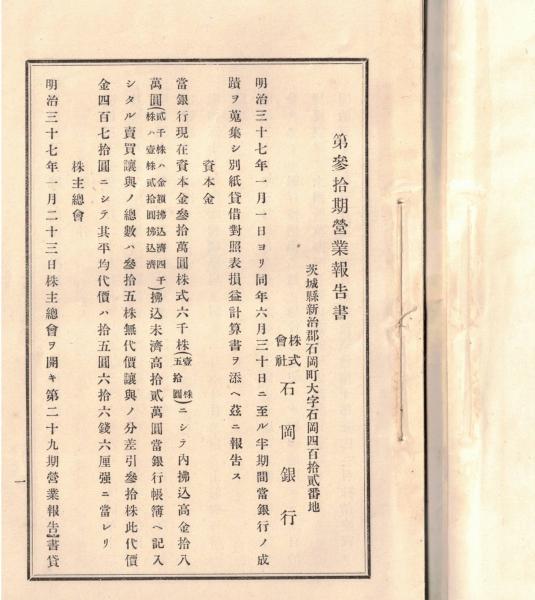 第參拾期營業報告書
茨城縣新治郡石岡町大字石岡四百拾貳番地
株式會社 石岡銀行
明治三十七年一月一日ヨリ同年六月三十日ニ至ル半期間當銀行ノ成
蹟ヲ蒐集シ別紙貸借對照表損益計算書ヲ添ヘ玆ニ報告ス
資本金
當銀行現在資本金參拾萬圓株式六千株(壹株五拾圓)ニシテ内拂込高金拾八
萬圓(貳千株ハ金額拂込濟四千株ハ壹株貳拾圓拂込濟)拂込未濟高拾貳萬圓當銀行帳簿ヘ記入
シタル賣買讓與ノ總數ハ參拾五株無代價讓與ノ分差引參拾株此代價
金四百七拾圓ニシテ其平均代價ハ拾五圓六拾六錢六厘强ニ當レリ
株主總會
明治三十七年一月二十三日株主總會ヲ開キ第二十九期營業報告書貸
一